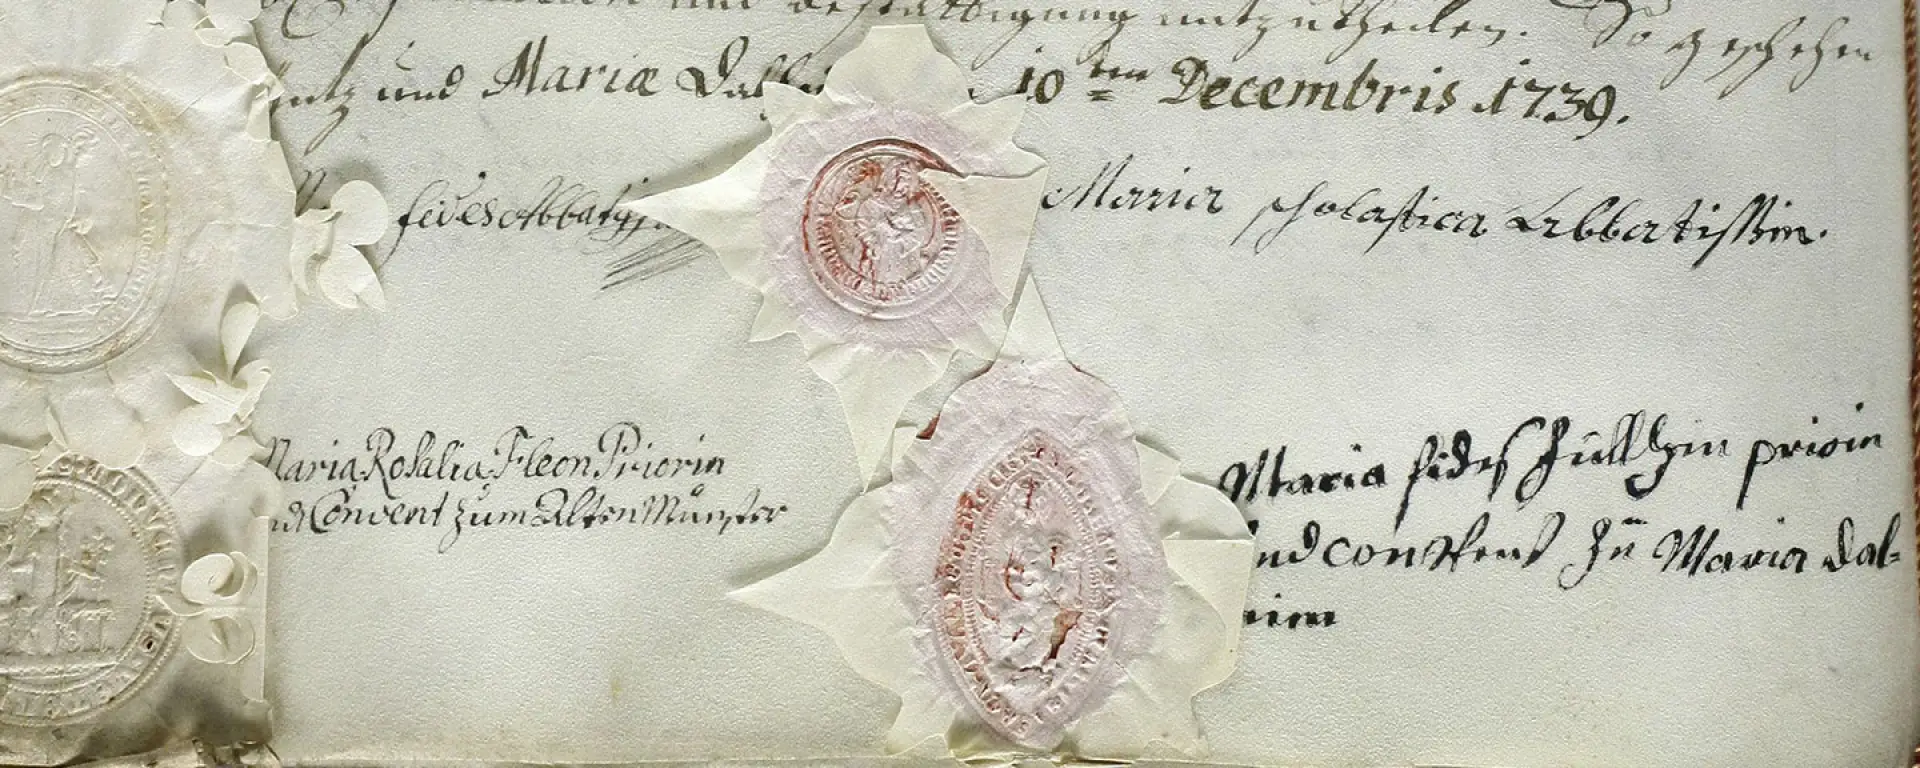 und bestättigung mitzutheilen. So geschehen
und Mariæ Dalhei 10ten Decembris 1739.
fides Abbatiss
Maria scholastica Abbatissin.
Maria Rosalia Fleon Priorin
nd Convent zum Alten Münster
Maria fides priorin
nd convent zu Maria Dal-
heim